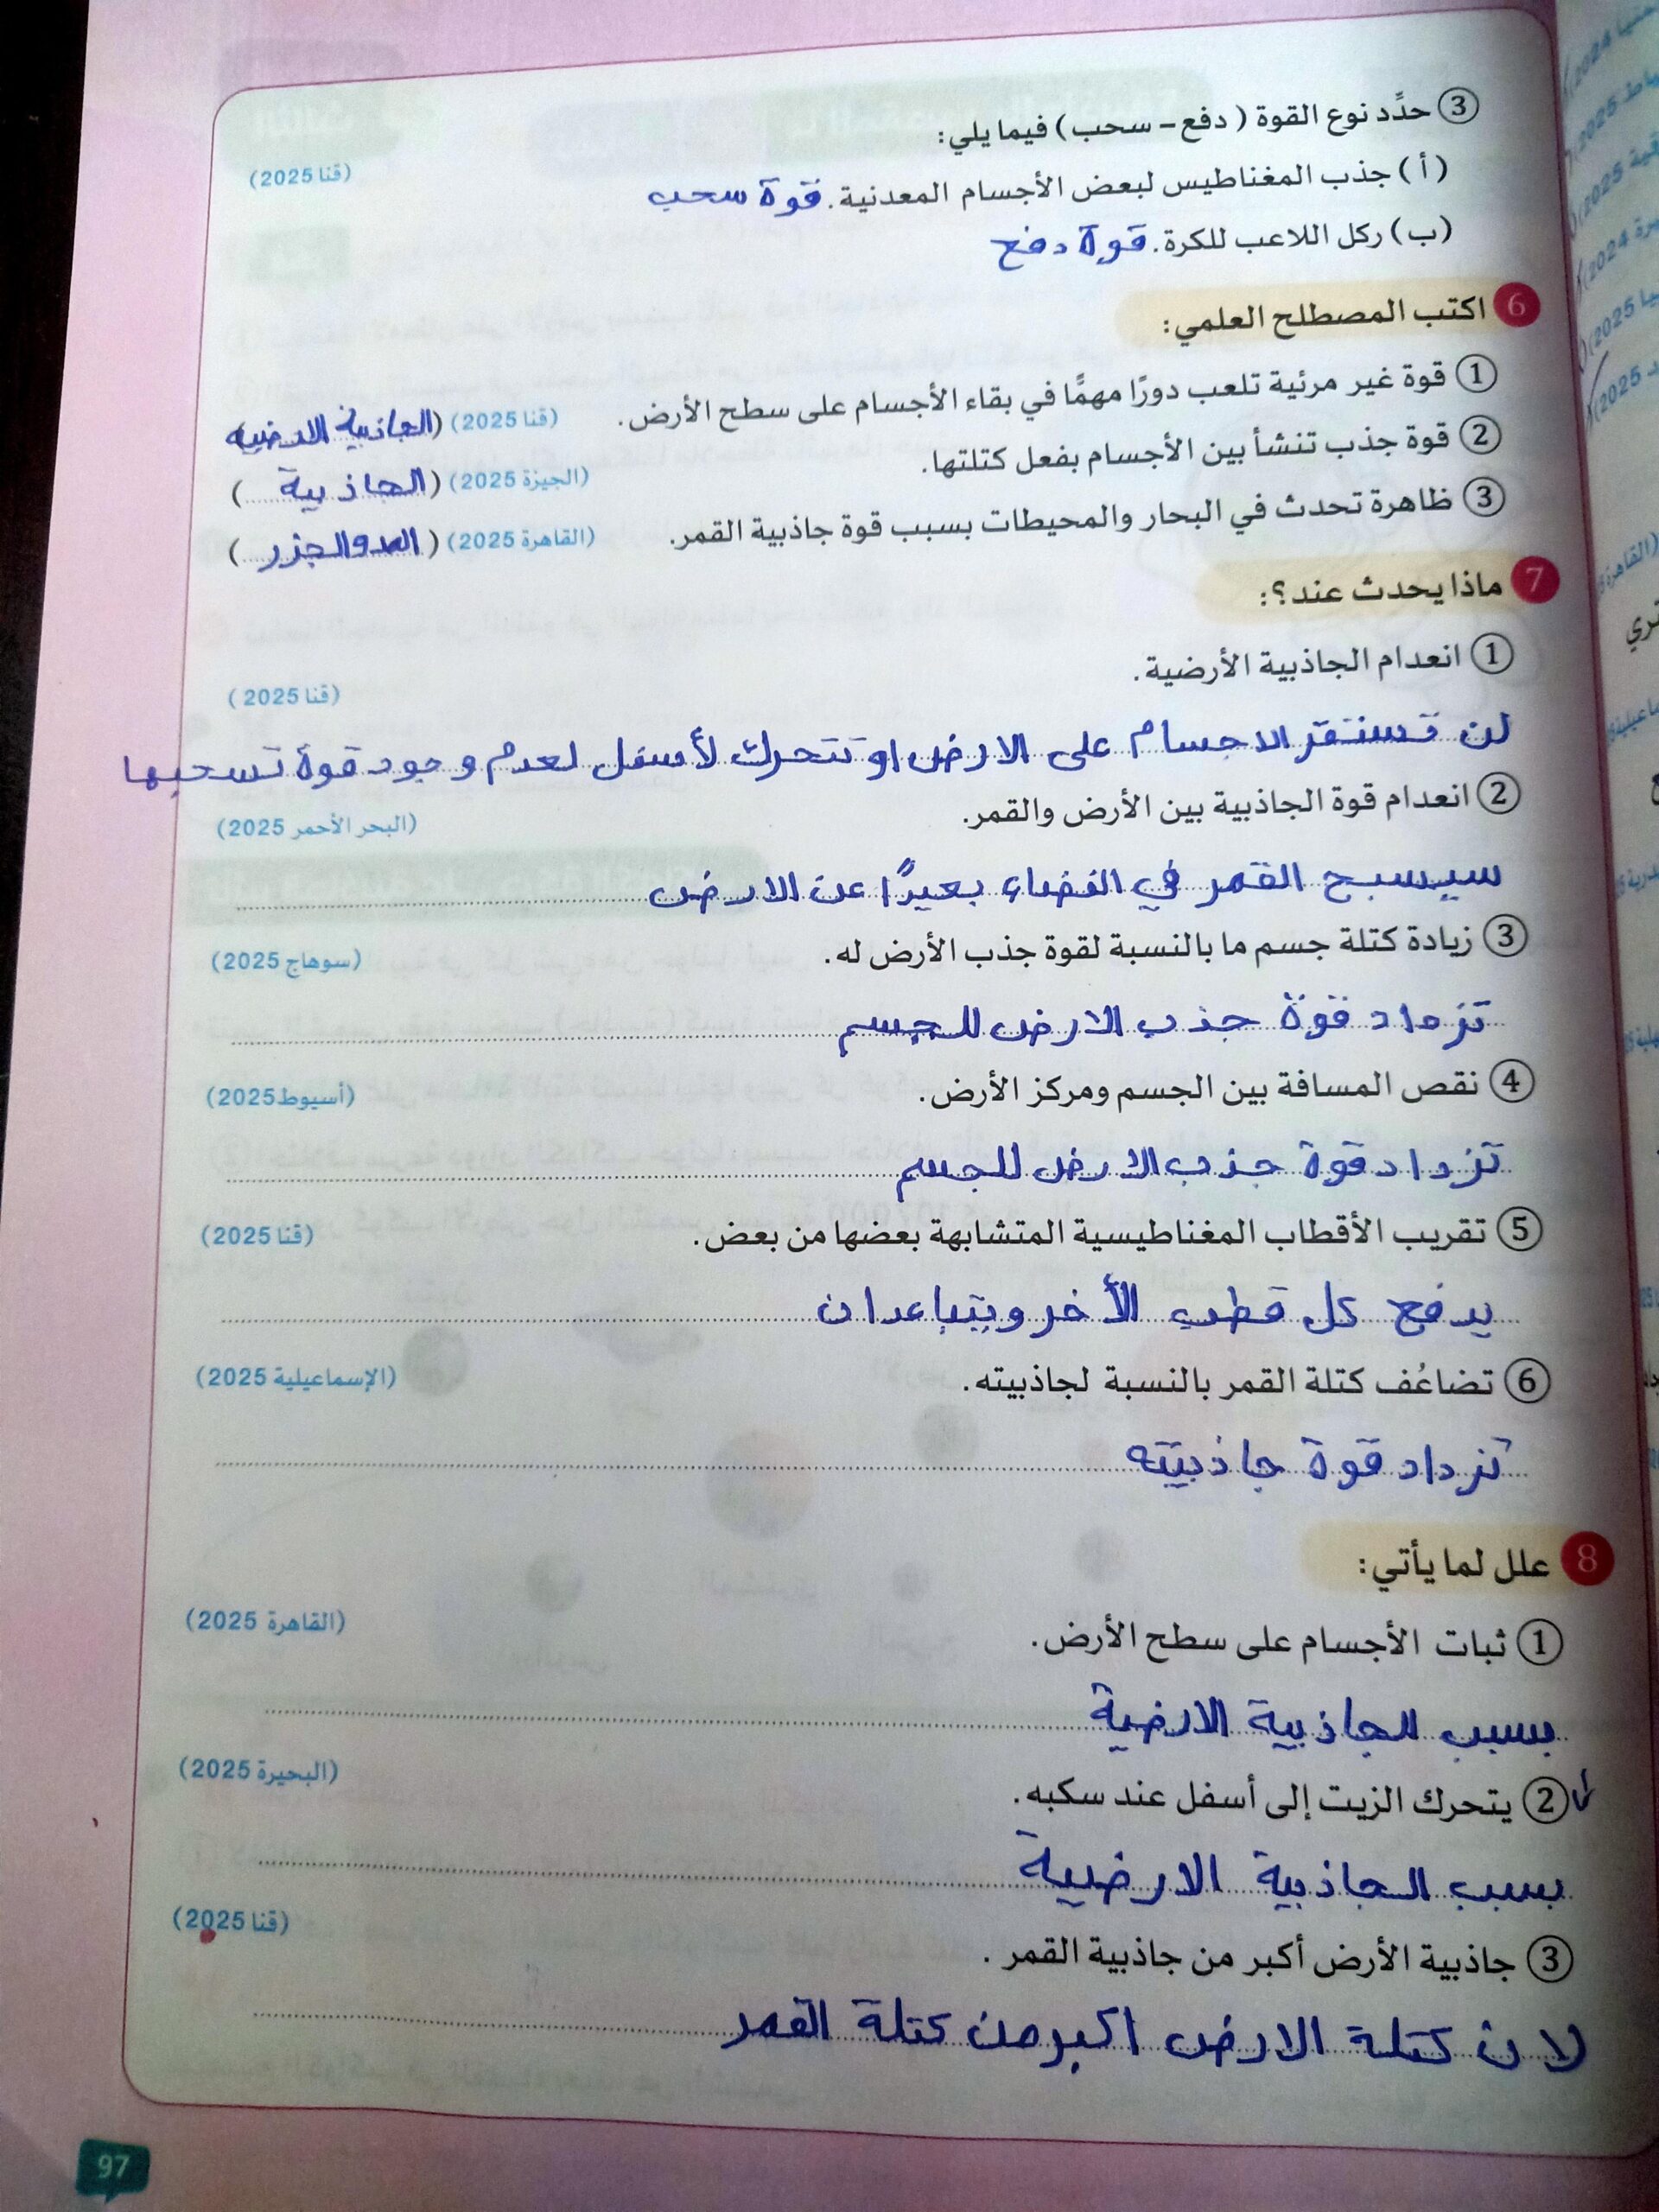 ③ حدِّد نوع القوة (دفع - سحب) فيما يلي:
(أ) جذب المغناطيس لبعض الأجسام المعدنية. قوة سحب (قنا 2025)
(ب) ركل اللاعب للكرة. قوة دفع
6 اكتب المصطلح العلمي:
① قوة غير مرئية تلعب دورًا مهمًّا في بقاء الأجسام على سطح الأرض. (قنا 2025) (الجاذبية الارضية)
② قوة جذب تنشأ بين الأجسام بفعل كتلتها. (الجيزة 2025) (الجاذبية)
③ ظاهرة تحدث في البحار والمحيطات بسبب قوة جاذبية القمر. (القاهرة 2025) (المد والجزر)
7 ماذا يحدث عند؟:
① انعدام الجاذبية الأرضية. (قنا 2025)
لن تستقر الاجسام على الارض او تتحرك لأسفل لعدم وجود قوة تسحبها
② انعدام قوة الجاذبية بين الأرض والقمر. (البحر الأحمر 2025)
سيسبح القمر في الفضاء بعيدًا عن الارض
③ زيادة كتلة جسم ما بالنسبة لقوة جذب الأرض له. (سوهاج 2025)
تزداد قوة جذب الارض للجسم
④ نقص المسافة بين الجسم ومركز الأرض. (أسيوط 2025)
تزداد قوة جذب الارض للجسم
⑤ تقريب الأقطاب المغناطيسية المتشابهة بعضها من بعض. (قنا 2025)
يدفع كل قطب الأخر ويتباعدان
⑥ تضاعُف كتلة القمر بالنسبة لجاذبيته. (الإسماعيلية 2025)
تزداد قوة جاذبيته
8 علل لما يأتي:
① ثبات الأجسام على سطح الأرض. (القاهرة 2025)
بسبب الجاذبية الارضية
② يتحرك الزيت إلى أسفل عند سكبه. (البحيرة 2025)
بسبب الجاذبية الارضية
③ جاذبية الأرض أكبر من جاذبية القمر. (قنا 2025)
لان كتلة الارض اكبر من كتلة القمر
97